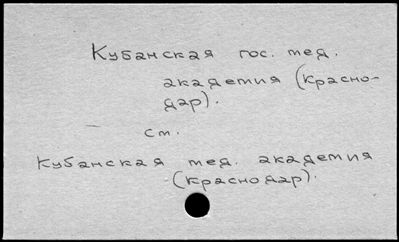 Кубанская гос. мед.
академия (Красно-
дар).
ст.
Кубанская мед. академия
(Краснодар).